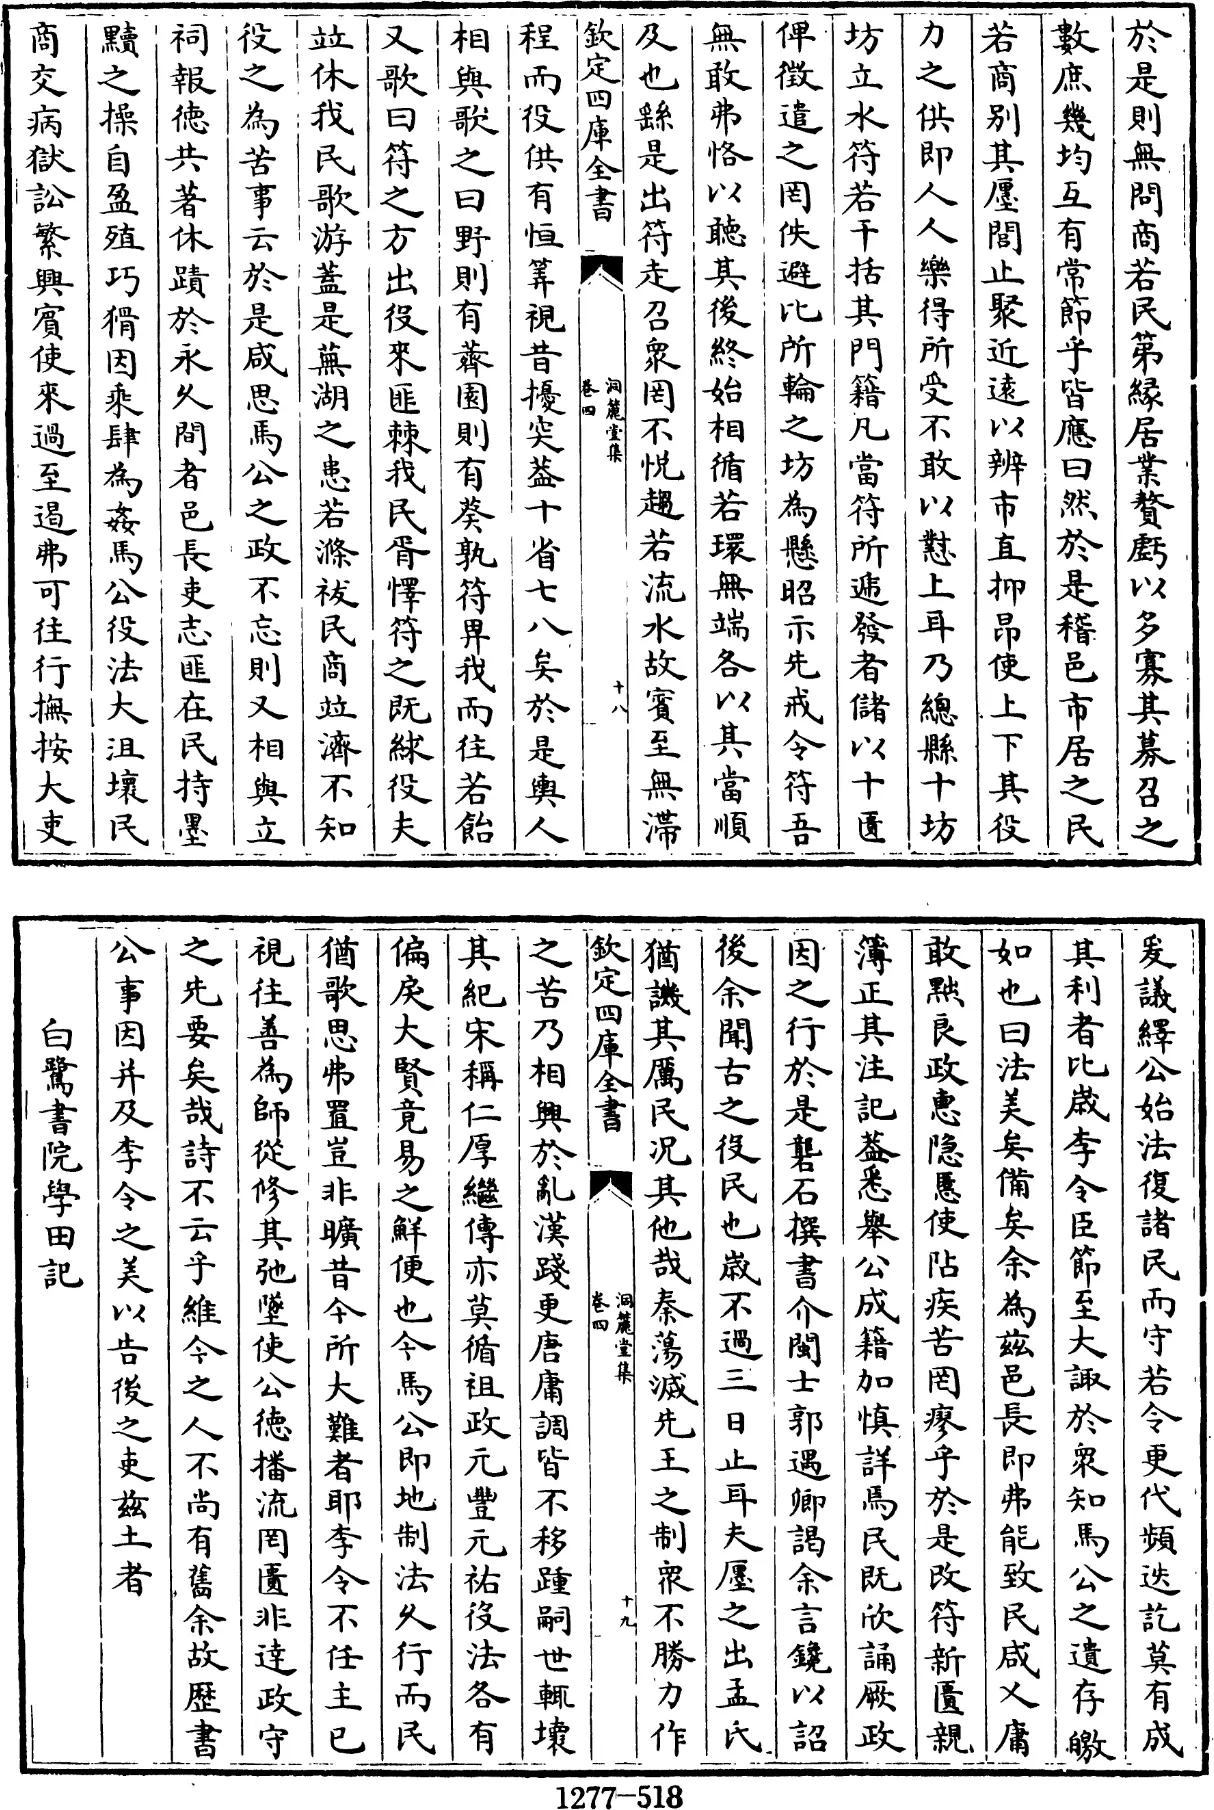 於是則無問商若民第緣居業贅虧以多寡其募召之
數庶幾均互有常節乎皆應曰然於是稽邑市居之民
若商別其㕓閭止聚近遠以辨市直抑昂使上下其役
力之供即人人樂得所受不敢以懟上耳乃總縣十坊
坊立水符若干括其門籍凡當符所遞發者儲以十匱
俾徵遣之罔佚避比所輪之坊為懸昭示先戒令符吾
無敢弗恪以聽其後終始相循若環無端各以其當順
及也繇是出符走召衆罔不悅趨若流水故賓至無滯
欽定四庫全書
洞麓堂集
卷四
十八
程而役供有恒筭視昔擾突葢十省七八矣於是輿人
相與歌之曰野則有薺園則有葵孰符畀我而往若飴
又歌曰符之方出役來匪棘我民胥懌符之既綠役夫
竝休我民歌游蓋是蕪湖之患若滌祓民商竝濟不知
役之為苦事云於是咸思馬公之政不忘則又相與立
祠報德共著休蹟於永久間者邑長吏志匪在民持墨
黷之操自盈殖巧猾因乘肆為姦馬公役法大沮壞民
商交病獄訟繁興賓使來過至遏弗可往行撫按大吏
爰議繹公始法復諸民而守若令更代頻迭訖莫有成
其利者比嵗李令臣節至大諏於衆知馬公之遺存皦
如也曰法美矣備矣余為茲邑長即弗能致民咸乂庸
敢㸃良政惠隱慝使阽疾苦罔瘳乎於是改符新匱親
簿正其注記葢悉舉公成籍加慎詳焉民既欣誦厥政
因之行於是礱石撰書介閩士郭遇卿謁余言鑱以詔
後余聞古之役民也嵗不過三日止耳夫㕓之出孟氏
猶譏其厲民況其他哉秦蕩滅先王之制衆不勝力作
欽定四庫全書
洞麓堂集
卷四
十九
之苦乃相興於亂漢踐更唐庸調皆不移踵嗣世輒壞
其紀宋稱仁厚繼傳亦莫循祖政元豐元祐役法各有
偏戾大賢竟易之鮮便也今馬公即地制法久行而民
猶歌思弗置豈非曠昔今所大難者耶李令不任主已
視往善為師從修其弛墜使公德播流罔匱非達政守
之先要矣哉詩不云乎維今之人不尚有舊余故歷書
公事因并及李令之美以告後之吏茲土者
白鷺書院學田記
1277-518